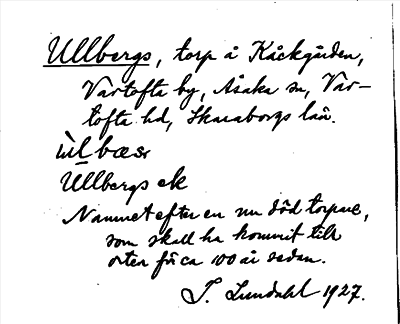 Ullbergs, torp å Kåckgården,
Vartofta by, Åsaka sn, Var-
tofta hd, Skaraborgs län.
ùl bæsr
Ullbergs ek
Namnet efter en nu död torpare,
som skall ha kommit till
orten för ca 100 år sedan.
S. Lundahl 1927.